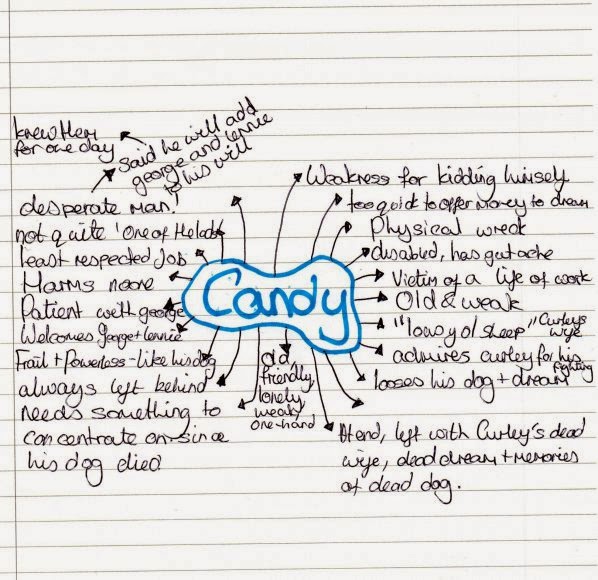 knew them
for one day
said he will add
george and lennie
to his will
desperate man!
not quite 'one of the lads'
least respected job
Harms noone
Patient with george
Welcomes george + lennie
Frail + Powerless - like his dog
always left behind
needs something to
concentrate on since
his dog died
Candy
Old,
friendly,
lonely,
weak,
one-hand
Weakness for kidding himself
too quick to offer money to dream
Physical wreck
disabled, has gut ache
Victim of a life of work
Old & weak
"lousy ol sheep" Curleys
wife
admires curley for his
fighting
looses his dog + dream
At end, left with Curley's dead
wife, dead dream + memories
of dead dog.